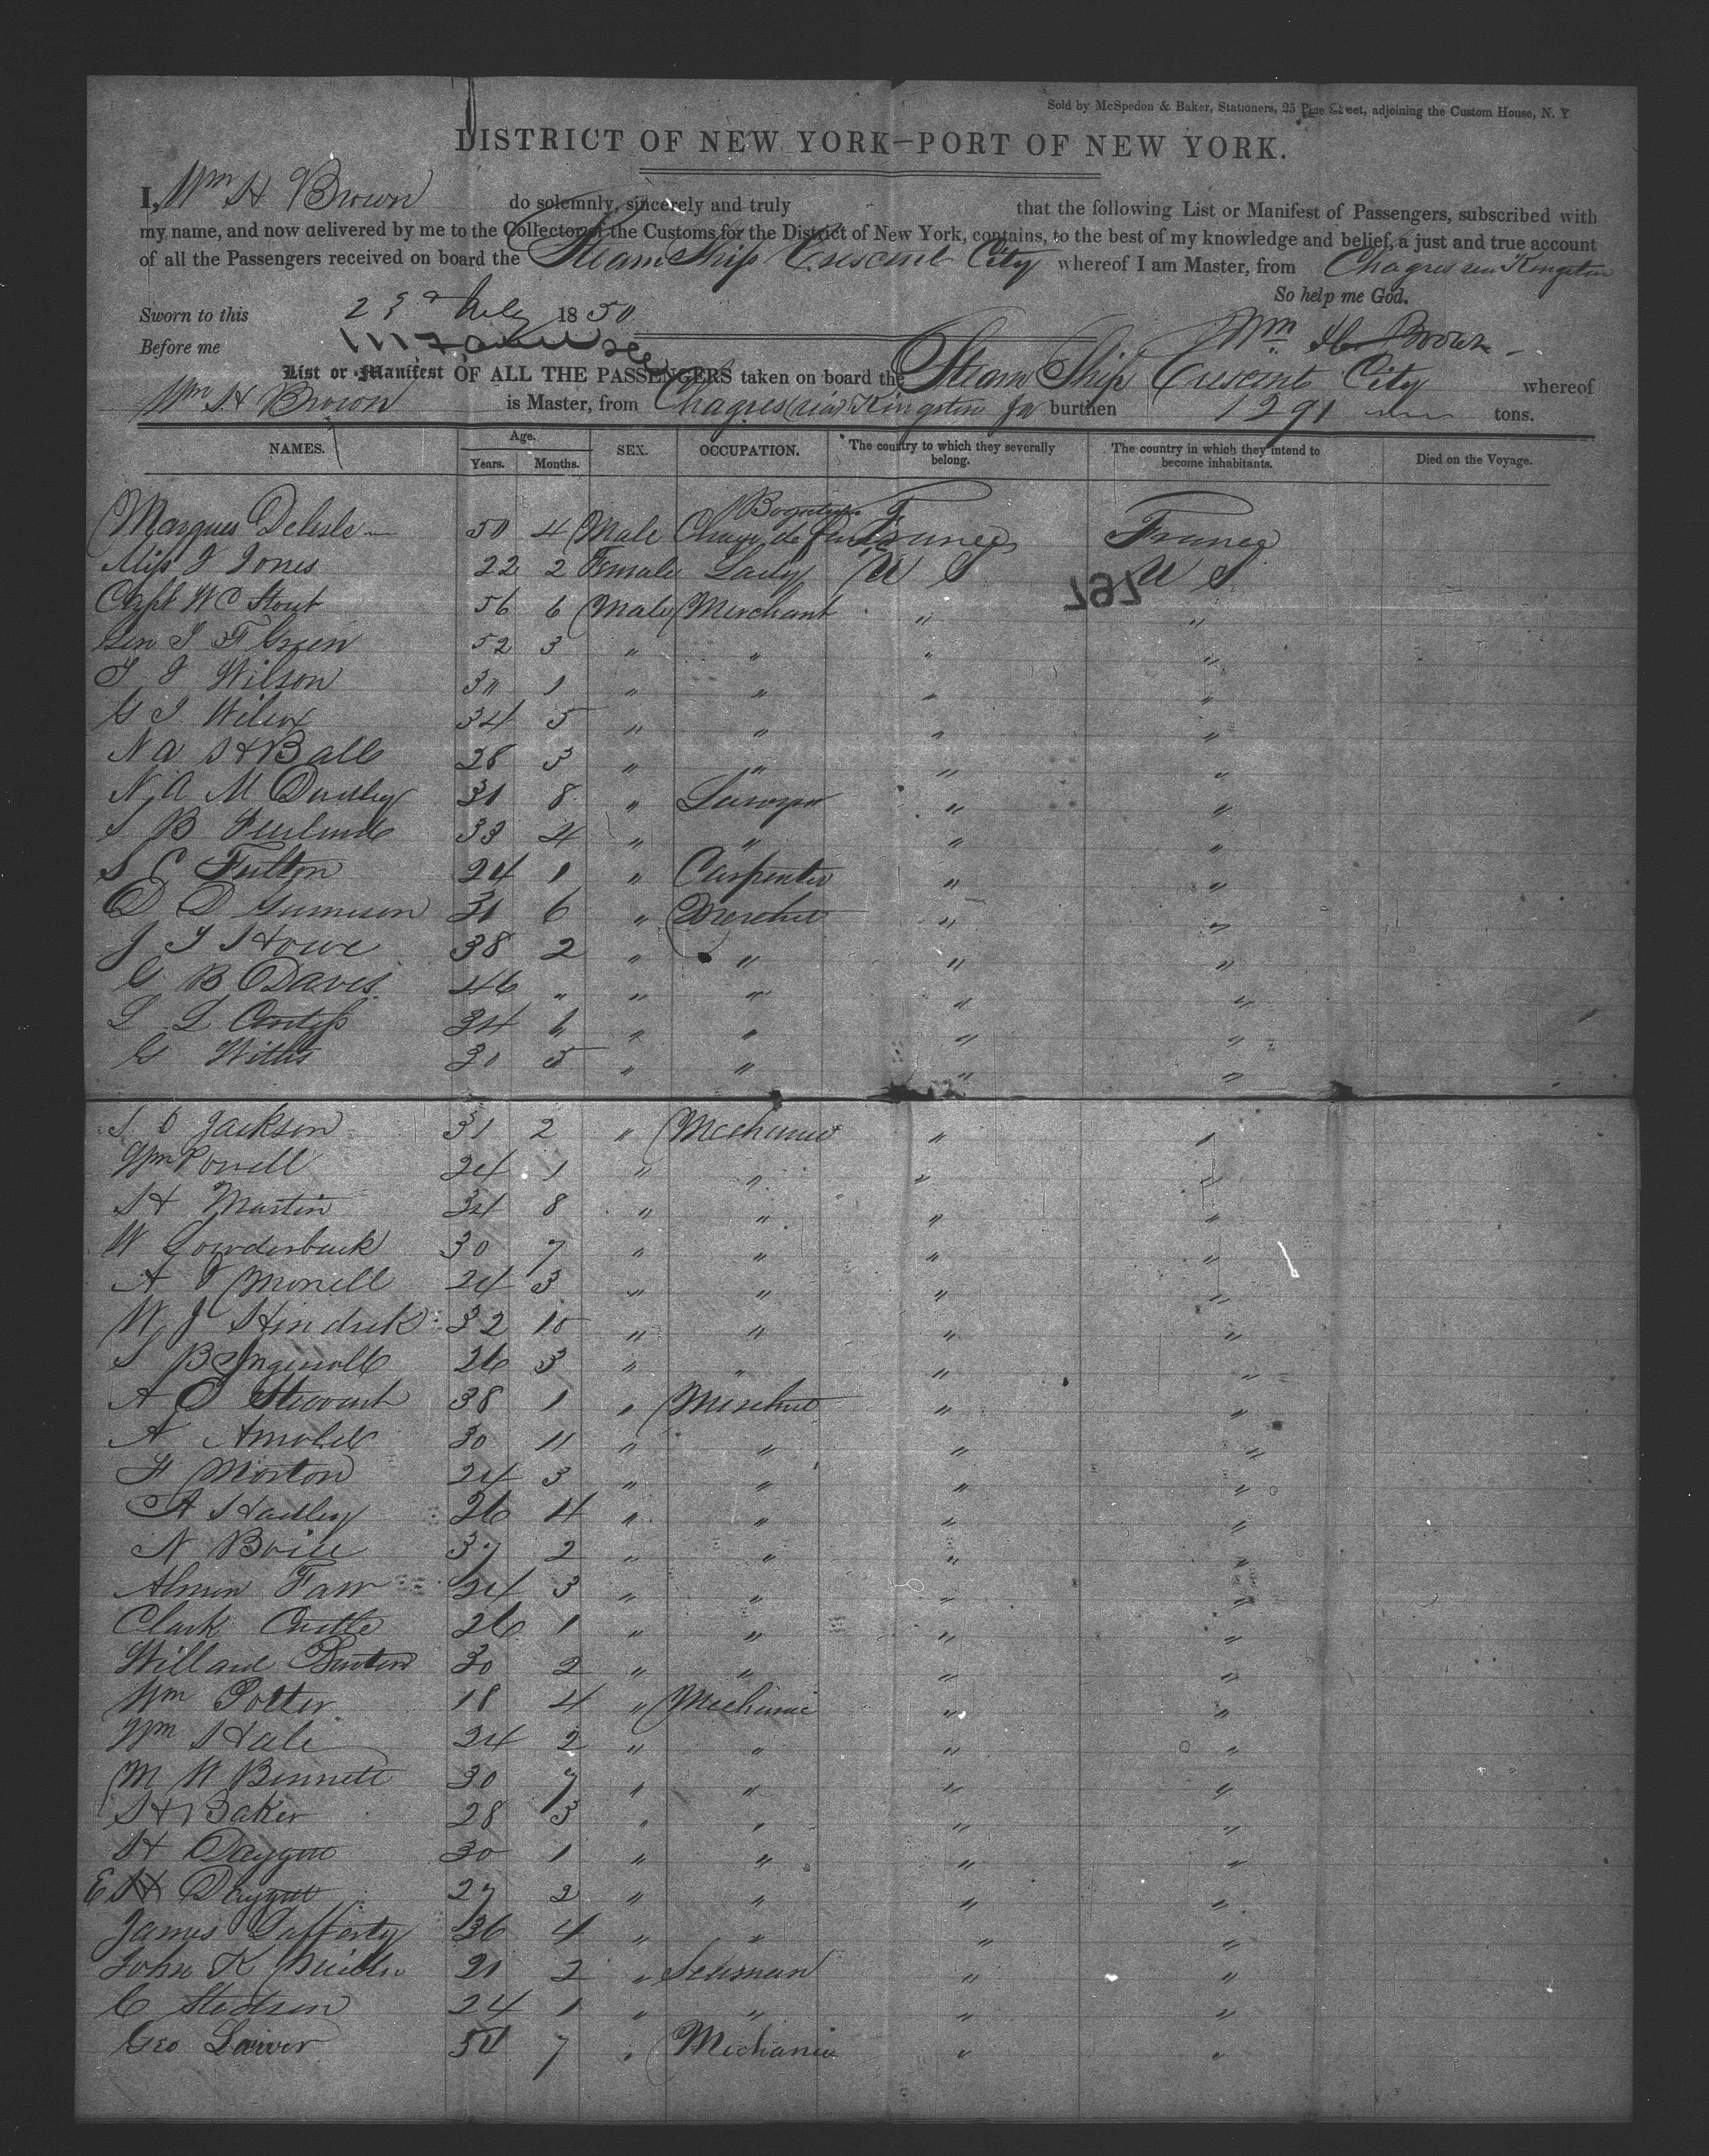 Sold by McSpedon & Baker, Stationers, 25 Pine Street, adjoining the Custom House, N. Y
DISTRICT OF NEW YORK—PORT OF NEW YORK.
I, Wm H Brown do solemnly, sincerely and truly that the following List or Manifest of Passengers, subscribed with
my name, and now delivered by me to the Collector of the Customs for the District of New York, contains, to the best of my knowledge and belief, a just and true account
of all the Passengers received on board the Steam Ship Crescent City whereof I am Master, from Chagres via Kingston
So help me God.
Sworn to this 1850
Before me Wm H Brown
List or Manifest OF ALL THE PASSENGERS taken on board the Steam Ship Crescent City whereof
Wm H Brown is Master, from Chagres (via) Kingston Ja burthen 1291 tons.
NAMES. Age. Years. Months. SEX. OCCUPATION. The country to which they severally belong. The country in which they intend to become inhabitants. Died on the Voyage.
Marques Delisle 50 4 Male Charge de France France
Miss J Jones 22 2 Female Lady U S U S
767
Capt W C Stout 56 6 Male Merchant " "
Gen J F Green 52 3 " " " "
T J Wilson 30 1 " " " "
G J Wilcox 34 5 " " " "
N A H Ball 28 3 " " " "
N A M Dudley 31 8 " Lawyer " "
S B 33 4 " " " "
S C Fulton 24 1 " Carpenter " "
D D Gunnison 31 6 " Mercht " "
J T Howe 38 2 " " " "
G B Davis 46 " " " " "
L L 34 6 " " " "
G Willis 30 5 " " " "
S O Jackson 31 2 " Mechanic " "
Wm Powell 24 1 " " " "
H Martin 34 8 " " " "
W Louderback 30 7 " " " "
A J Morrell 24 3 " " " "
W J Hindrick 32 10 " " " "
S B Ingersoll 26 3 " " " "
A C Stewart 38 1 " Mercht " "
A Arnold 30 11 " " " "
F Morton 24 3 " " " "
A Hadley 26 4 " " " "
N Boice 37 2 " " " "
Almon Farr 24 3 " " " "
Clark Castle 26 1 " " " "
Willard Benton 30 2 " " " "
Wm Potter 18 4 " Mechanic " "
Wm Hale 24 2 " " " "
M W Bennett 30 7 " " " "
H Baker 28 3 " " " "
H Daggett 30 1 " " " "
E H Daggett 27 2 " " " "
James Lafferty 36 4 " " " "
John K 21 2 " Seaman " "
C Stetson 24 1 " " " "
Geo Laiver 50 7 " Mechanic " "